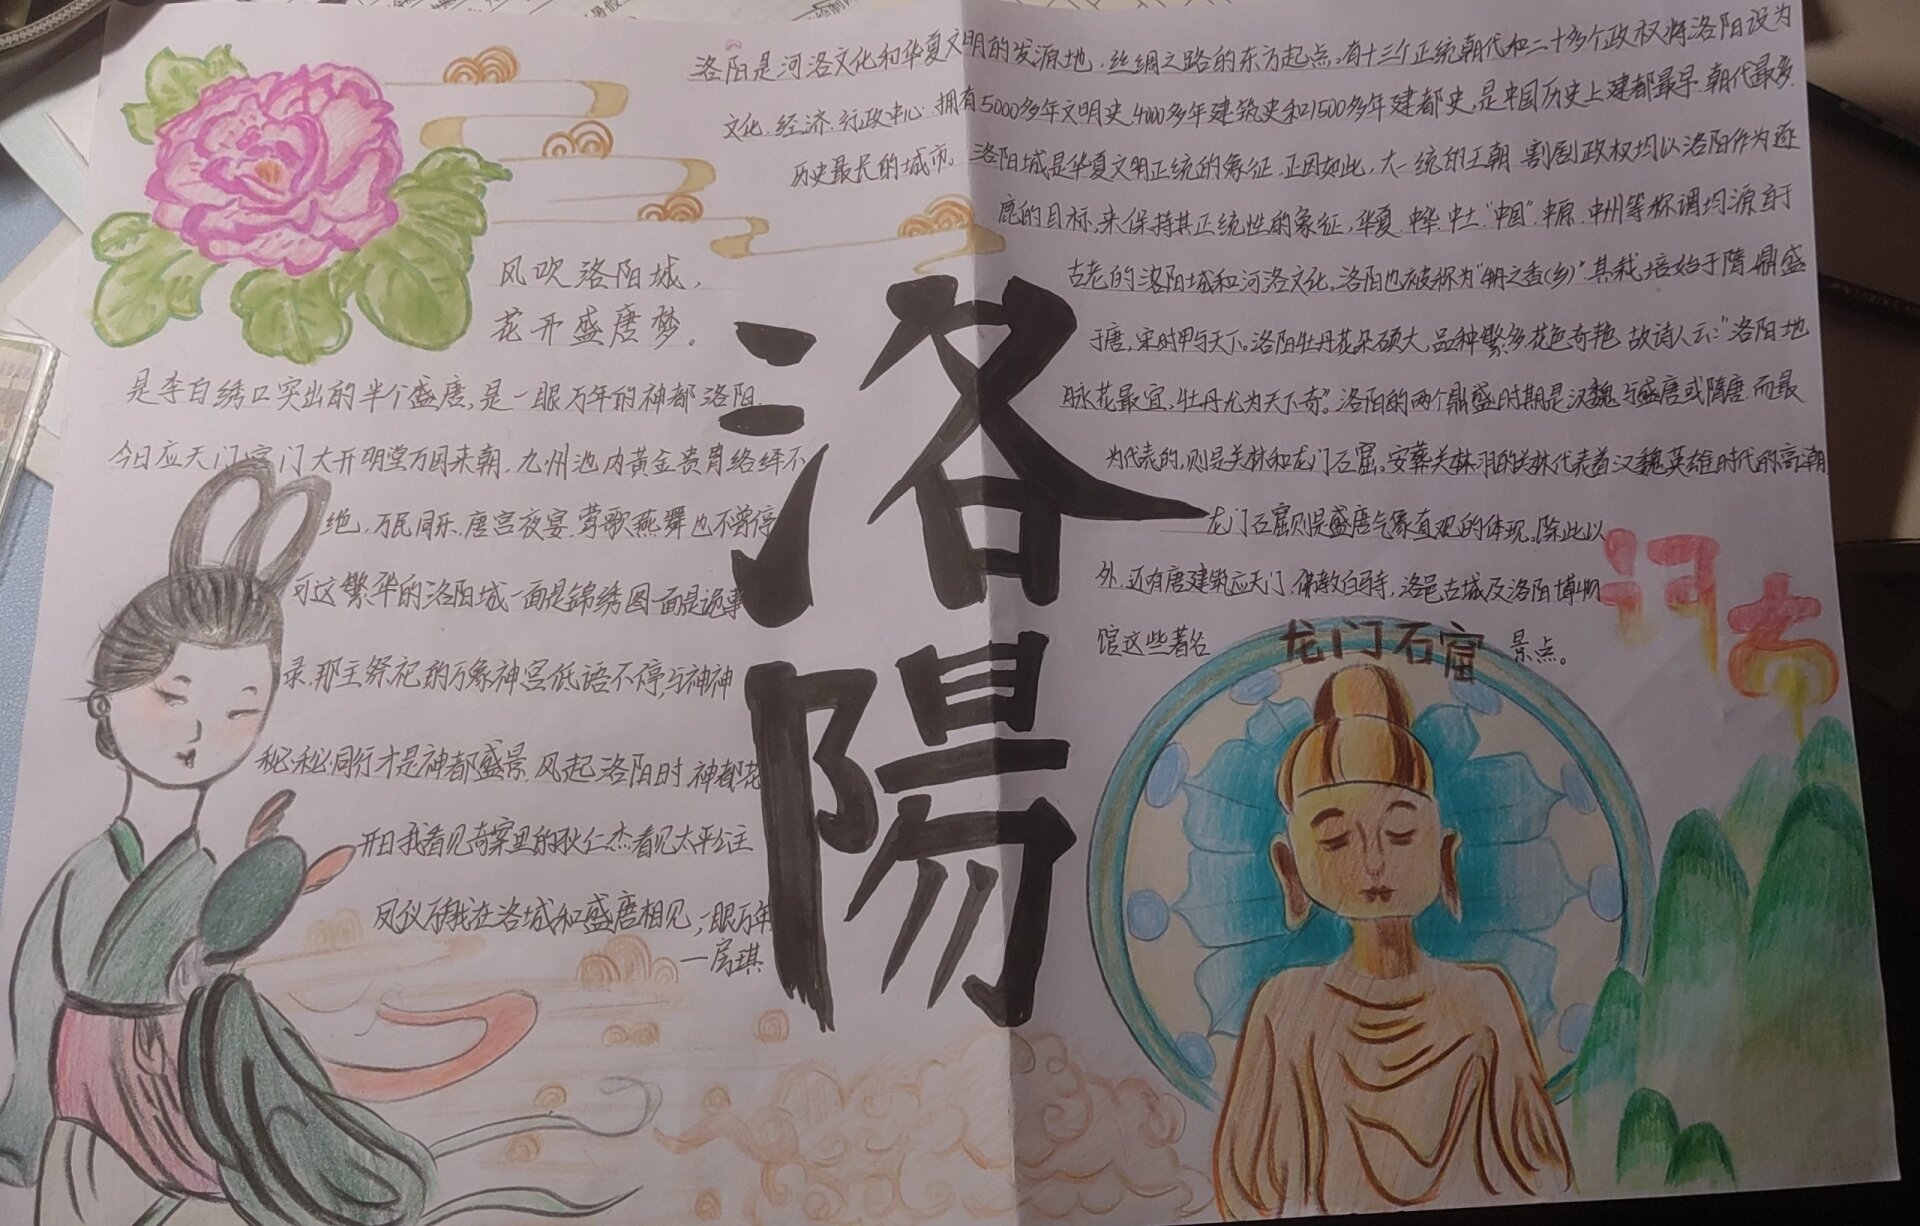 洛阳是河洛文化和华夏文明的发源地，丝绸之路的东方起点。有十三个正统朝代和二十多个政权将洛阳设为
文化.经济.行政中心.拥有5000多年文明史4000多年建筑史和1500多年建都史，是中国历史上建都最早.朝代最多.
历史最长的城市。洛阳城是华夏文明正统的象征.正因如此，大一统的王朝.割剧政权均以洛阳作为逐
鹿的目标，来保持其正统性的象征，华夏.中华.中土."中国".中原.中州等称谓均源自于
古老的洛阳城和河洛文化。洛阳也被称为"之香(乡)".其栽培始于隋.鼎盛
于唐，宋时甲于天下。洛阳牡丹花朵硕大，品种繁多花色奇艳.故诗人云:"洛阳地
脉花最宜，牡丹尤为天下奇"。洛阳的两个鼎盛时期是汉魏与盛唐或隋唐.而最
为代表的，则是关林和龙门石窟。安葬关林羽的关林代表着汉魏英雄时代的高潮
龙门石窟则是盛唐气象直观的体现。除此以
外.还有唐建筑应天门.佛教白马寺，洛邑古城及洛阳博物
馆这些著名
景点。
风吹洛阳城，
花开盛唐梦。
是李白绣口突出的半个盛唐，是一眼万年的神都洛阳.
今日应天门宫门大开明堂万国来朝.九州池内黄金贵胄络绎不
绝.万民同乐.唐宫夜宴.莺歌燕舞也不曾停
可这繁华的洛阳城一面是锦绣图一面是诡事
录.那主祭祀的万象神宫低语不停，与神神
秘秘同行才是神都盛景.风起洛阳时.神都花
开日我看见奇案里的狄仁杰看见太平公主
凤仪万我在洛城和盛唐相见，一眼万年
—房琪
洛
陽
河古
龙门石窟